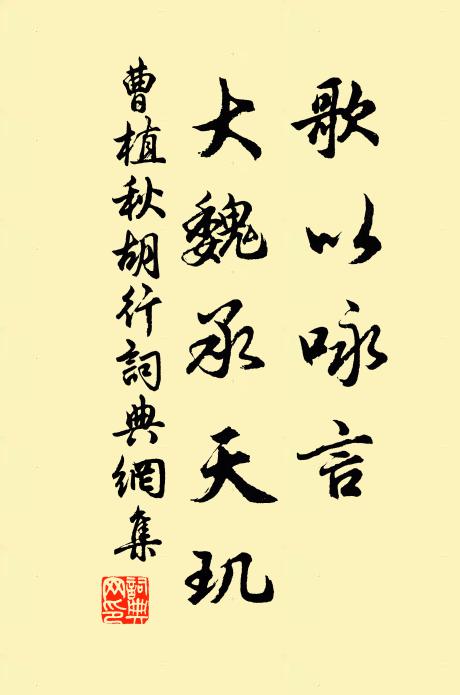 歌以咏言
大魏承天玑
曹植秋胡行詞典網集
詞典網印